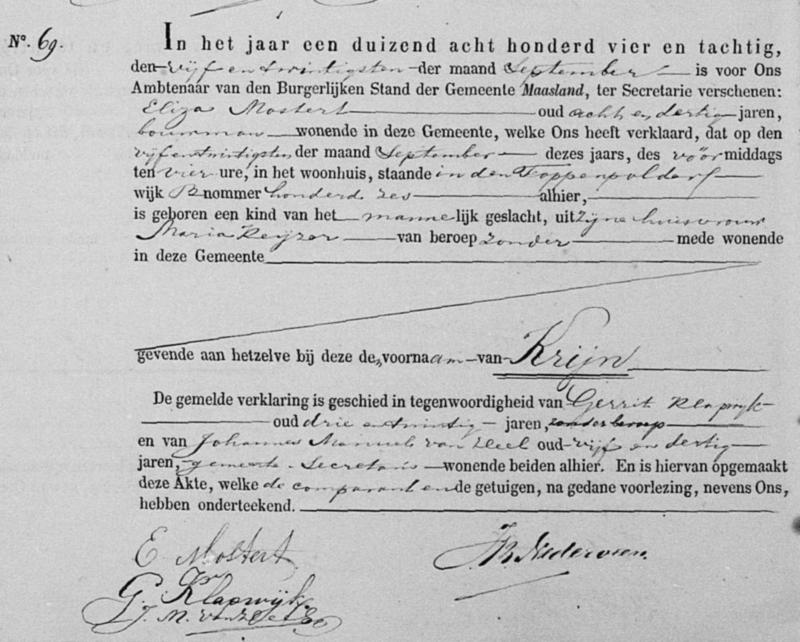 Nº. 69.
In het jaar een duizend acht honderd vier en tachtig,
den vijf en twintigsten der maand September is voor Ons
Ambtenaar van den Burgerlijken Stand der Gemeente Maasland, ter Secretarie verschenen:
Eliza Mostert oud acht en dertig jaren,
bouwman wonende in deze Gemeente, welke Ons heeft verklaard, dat op den
vijfentwintigsten der maand September dezes jaars, des vóór middags
ten vier ure, in het woonhuis, staande in den Foppenpolder
wijk B nommer honderd zes alhier,
is geboren een kind van het mannelijk geslacht, uit zijne huisvrouw
Maria Keijzer van beroep zonder mede wonende
in deze Gemeente
gevende aan hetzelve bij deze de voornaam van Krijn
De gemelde verklaring is geschied in tegenwoordigheid van Gerrit Klapwijk
oud drie entwintig jaren, zonder beroep
en van Johannes Manuel van oud vijf en dertig
jaren, gemeente-Secretaris wonende beiden alhier. En is hiervan opgemaakt
deze Akte, welke de comparant en de getuigen, na gedane voorlezing, nevens Ons,
hebben onderteekend.
E. Mostert
G. Klapwijk
J. M. van